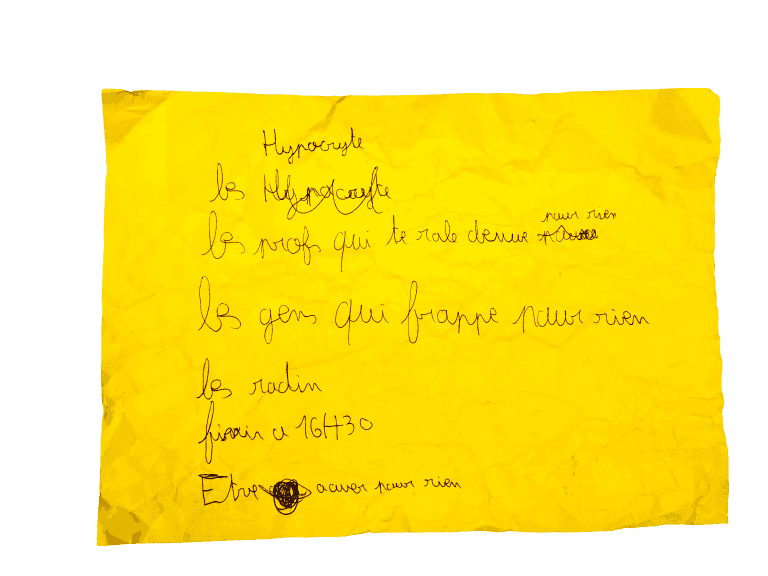 Hypocryte
les Hypocryte
pour rien
les profs qui te rale deçue
les gens qui frappe pour rien
les radin
finir a 16H30
Etre acuser pour rien